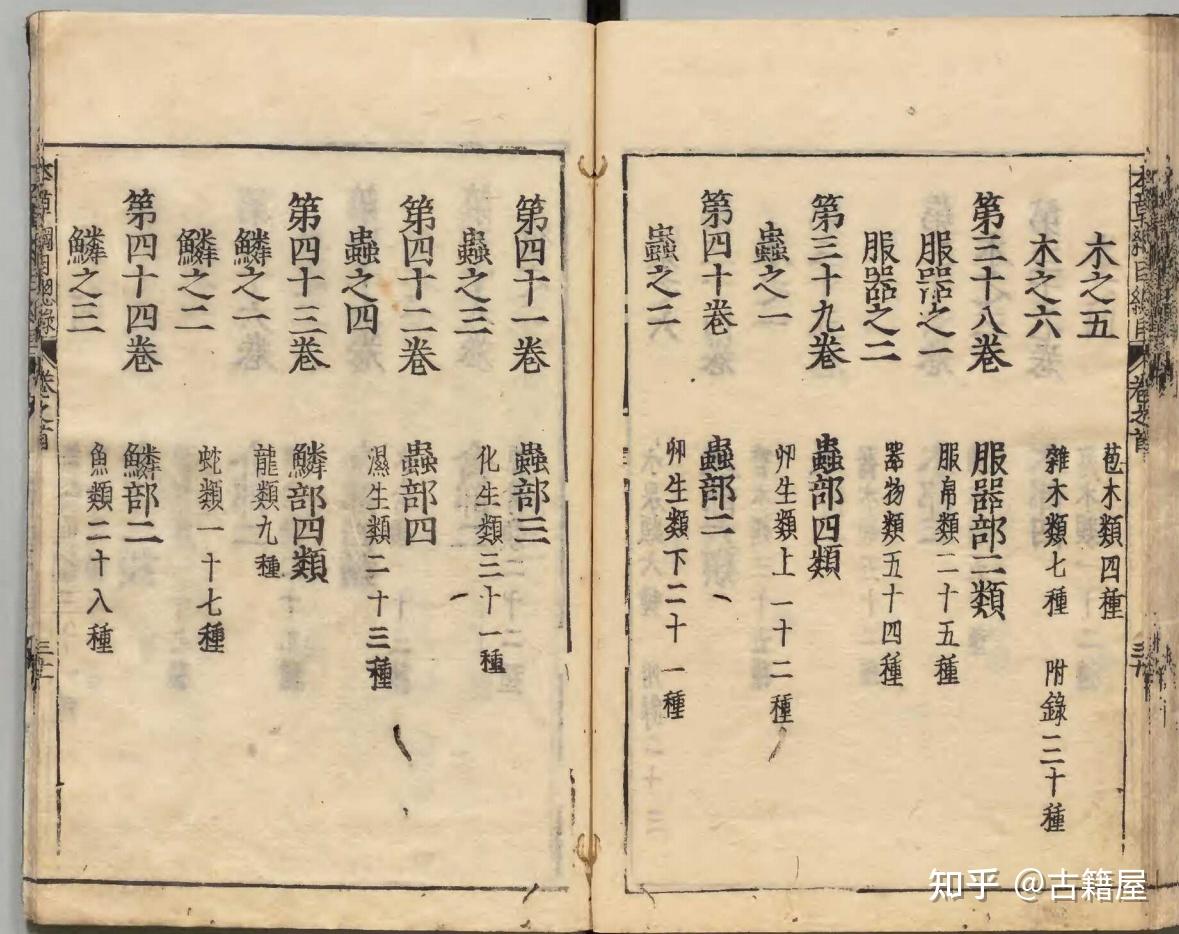 木之五 苞木類四種
木之六 雜木類七種 附錄二十種
第三十八卷 服器部二類
服器之一 服帛類二十五種
服器之二 器物類五十四種
第三十九卷 蟲部四類
蟲之一 卵生類上一十二種
第四十卷 蟲部二
蟲之二 卵生類下二十一種
第四十一卷 蟲部三
蟲之三 化生類三十一種
第四十二卷 蟲部四
蟲之四 濕生類二十三種
第四十三卷 鱗部四類
鱗之一 龍類九種
鱗之二 蛇類一十七種
第四十四卷 鱗部二
鱗之三 魚類二十八種
本草綱目總錄 卷之首
知乎 @古籍屋